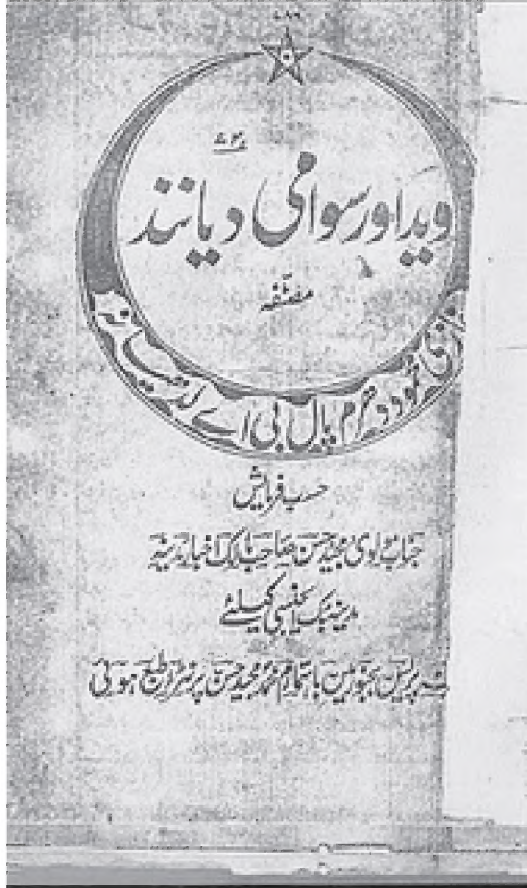 ۷۸۶
وید اور سوامی دیانند
مصنّفہ
غازی محمود دھرم پال بی اے لدھیانہ
حسب فرمایش
جناب مولوی مجید حسن صاحب مالک اخبار مدینہ
مدینہ بک ایجنسی کیلئے
پریس بجنور مین باہتمام محمد مجید حسن پرنٹر طبع ہوئی